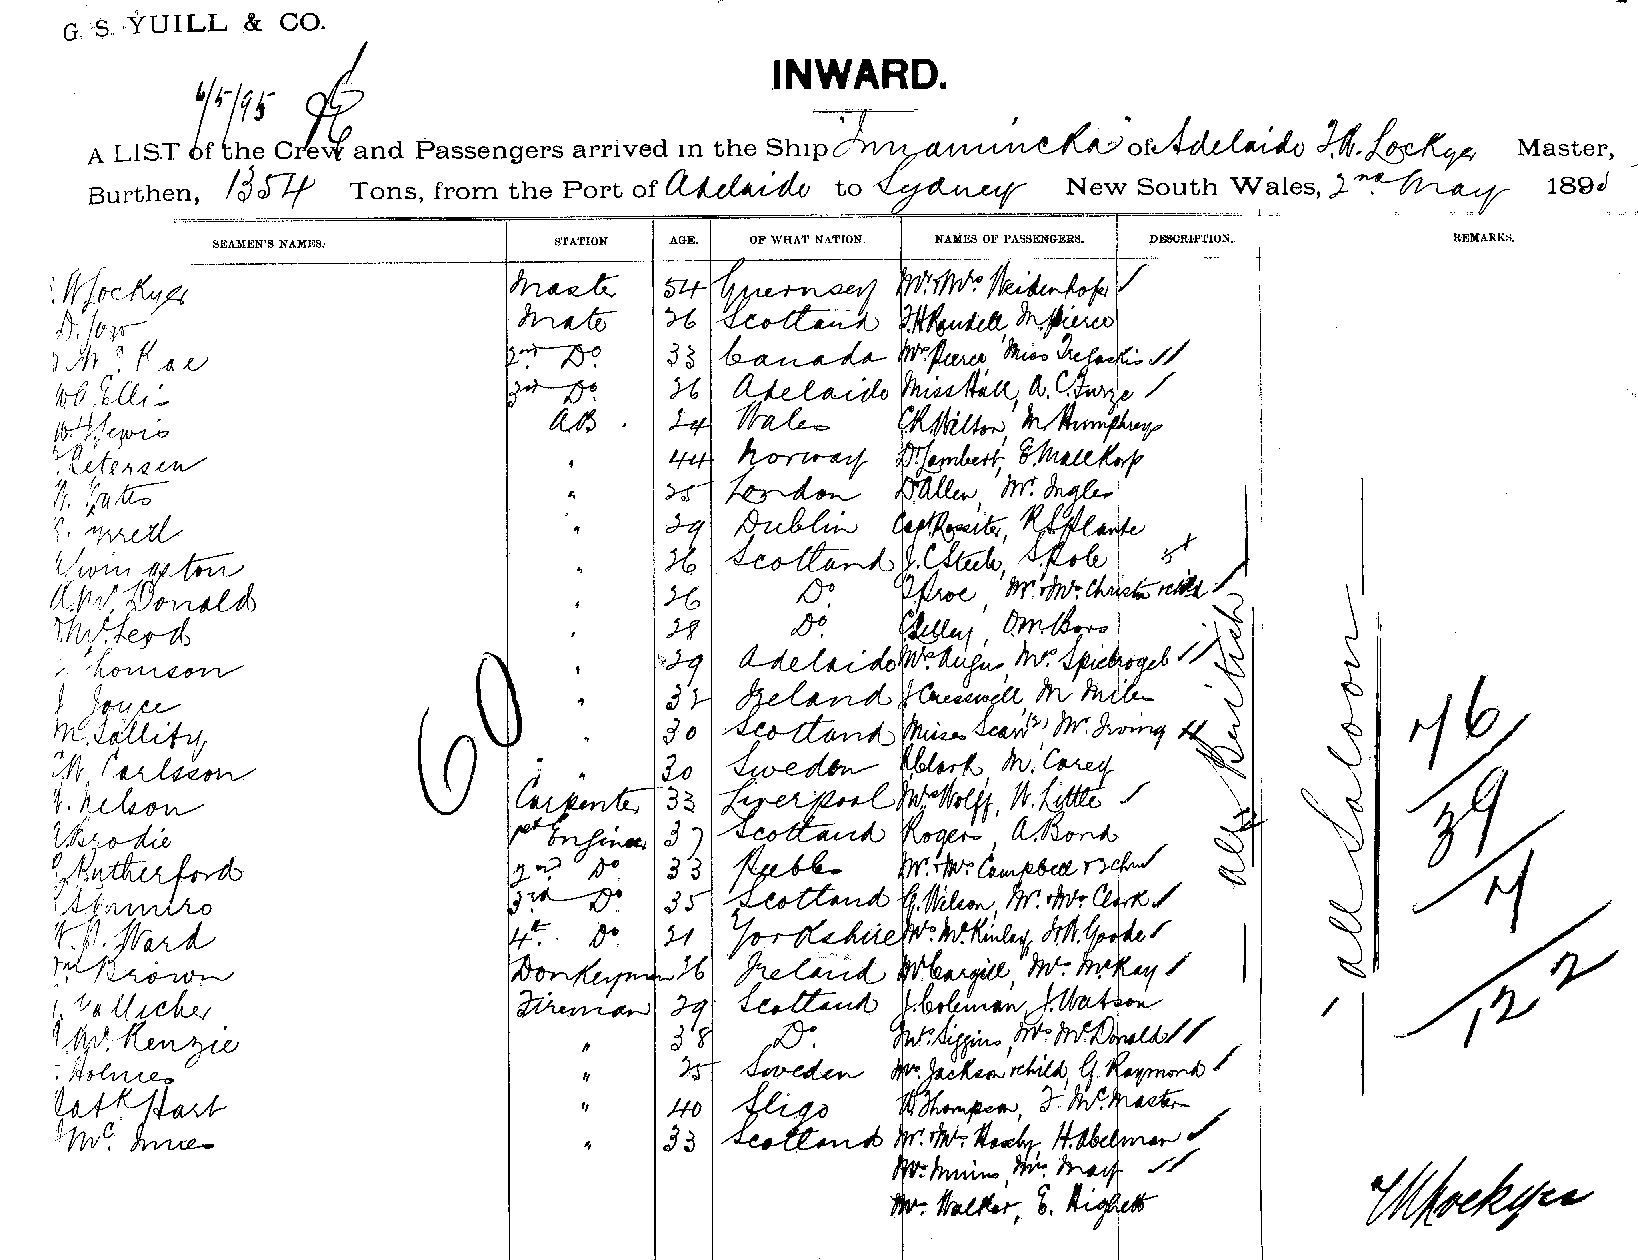 G. S. YUILL & CO.
INWARD.
6/5/95
A LIST of the Crew and Passengers arrived in the Ship "Innamincka" of Adelaide T. W. Lockyer Master,
Burthen, 1354 Tons, from the Port of Adelaide to Sydney New South Wales, 2nd May 1895
SEAMEN'S NAMES. STATION AGE. OF WHAT NATION. NAMES OF PASSENGERS. DESCRIPTION. REMARKS.
W Lockyer Master 54 Guernsey Mr. & Mrs. Weidenhofer
D. Mate 26 Scotland F H Rundell, M. Pierce
McRae 2nd Do. 33 Canada Mrs. Pierce, Miss Tregaskis
W A Ellis 3rd Do. 26 Adelaide Miss Hall, A. C. Furze
W H Lewis AB 24 Wales C R Wilton, M Humphreys
Petersen " 44 Norway D. Lambert, E. Mallkorp
Yates " 25 London D Allen, Mr. Ingles
" 29 Dublin Capt Rossiter, R S Plante
Livingston " 26 Scotland J. C Steele, S. Pole
A. McDonald " 26 Do. Proe, Mr. & Mrs. Christie & child
McLeod " 28 Do.
Thomson " 29 Adelaide Mrs. Angus, Mrs. Spietvogel
J Joyce " 32 Ireland J Cresswell, M Miles
" 30 Scotland Misses (2) Mr. Irving
W. Carlsson " 30 Sweden Clark, M. Carey
Nelson Carpenter 33 Liverpool Mrs Wolff, W. Little
Brodie 1st Engineer 37 Scotland Rogers, A. Bond
Rutherford 2nd Do 33 Peebles Mr. & Mrs Campbell & 2 chn
3rd Do. 35 Scotland G. Wilson, Mr. & Mrs Clark
Ward 4th Do. 21 Yorkshire Mrs. McKinlay, Goode
Brown Donkeyman 26 Ireland Mr Cargill, Mr. McKay
Gallicher Fireman 29 Scotland J. Coleman, J. Watson
McKenzie " 38 Do. Mr. Siggins, Mrs McDonald
Holmes " 25 Sweden Mrs. Jackson & child, G. Raymond
Hart " 40 Sligo W Thompson, F. McMaster
McInnes " 33 Scotland Mr. & Mrs. H. Abelman
Mr. May
Mr. Walker, E. Higgett
60
all British
all Saloon
76
39
7
122
TW Lockyer